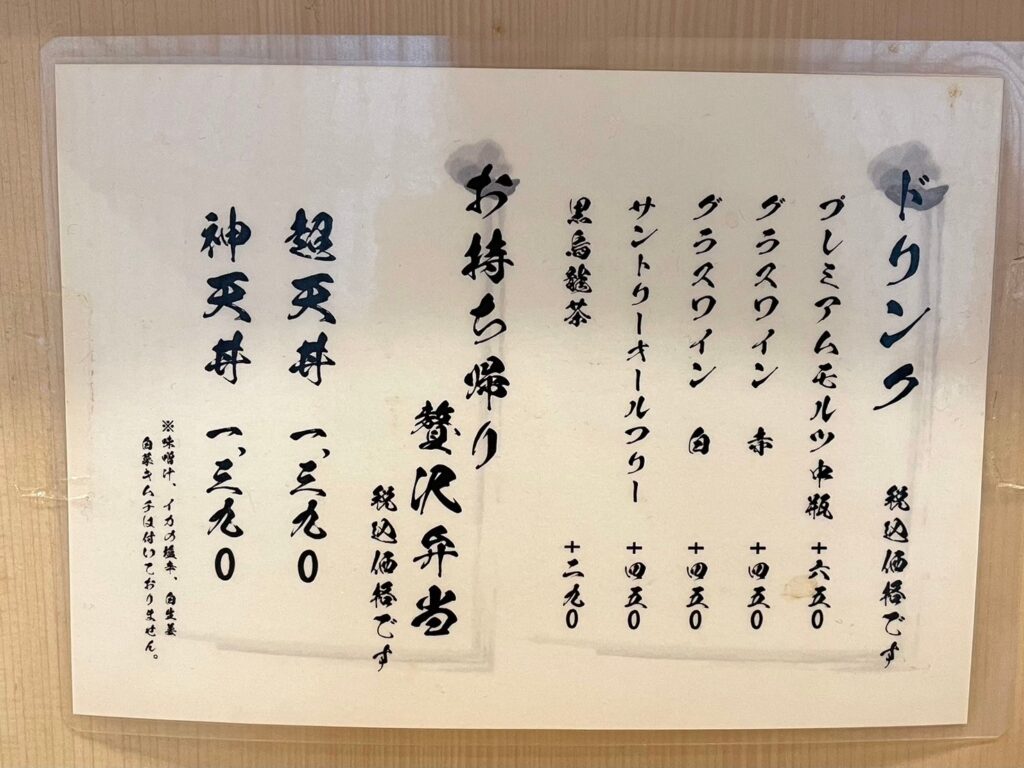 ドリンク
税込価格です
プレミアムモルツ中瓶 +六五0
グラスワイン 赤 +四五0
グラスワイン 白 +四五0
サントリーオールフリー +四五0
黒烏龍茶 +二九0
お持ち帰り
贅沢弁当
税込価格です
超天丼 一、三九0
神天丼 一、三九0
※味噌汁、イカの塩辛、白生姜
白菜キムチは付いておりません。